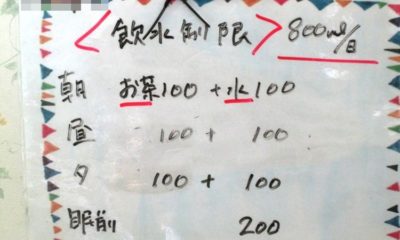 <飲水制限> 800ml/日
朝 お茶100 + 水100
昼 100 + 100
夕 100 + 100
眠剤 200